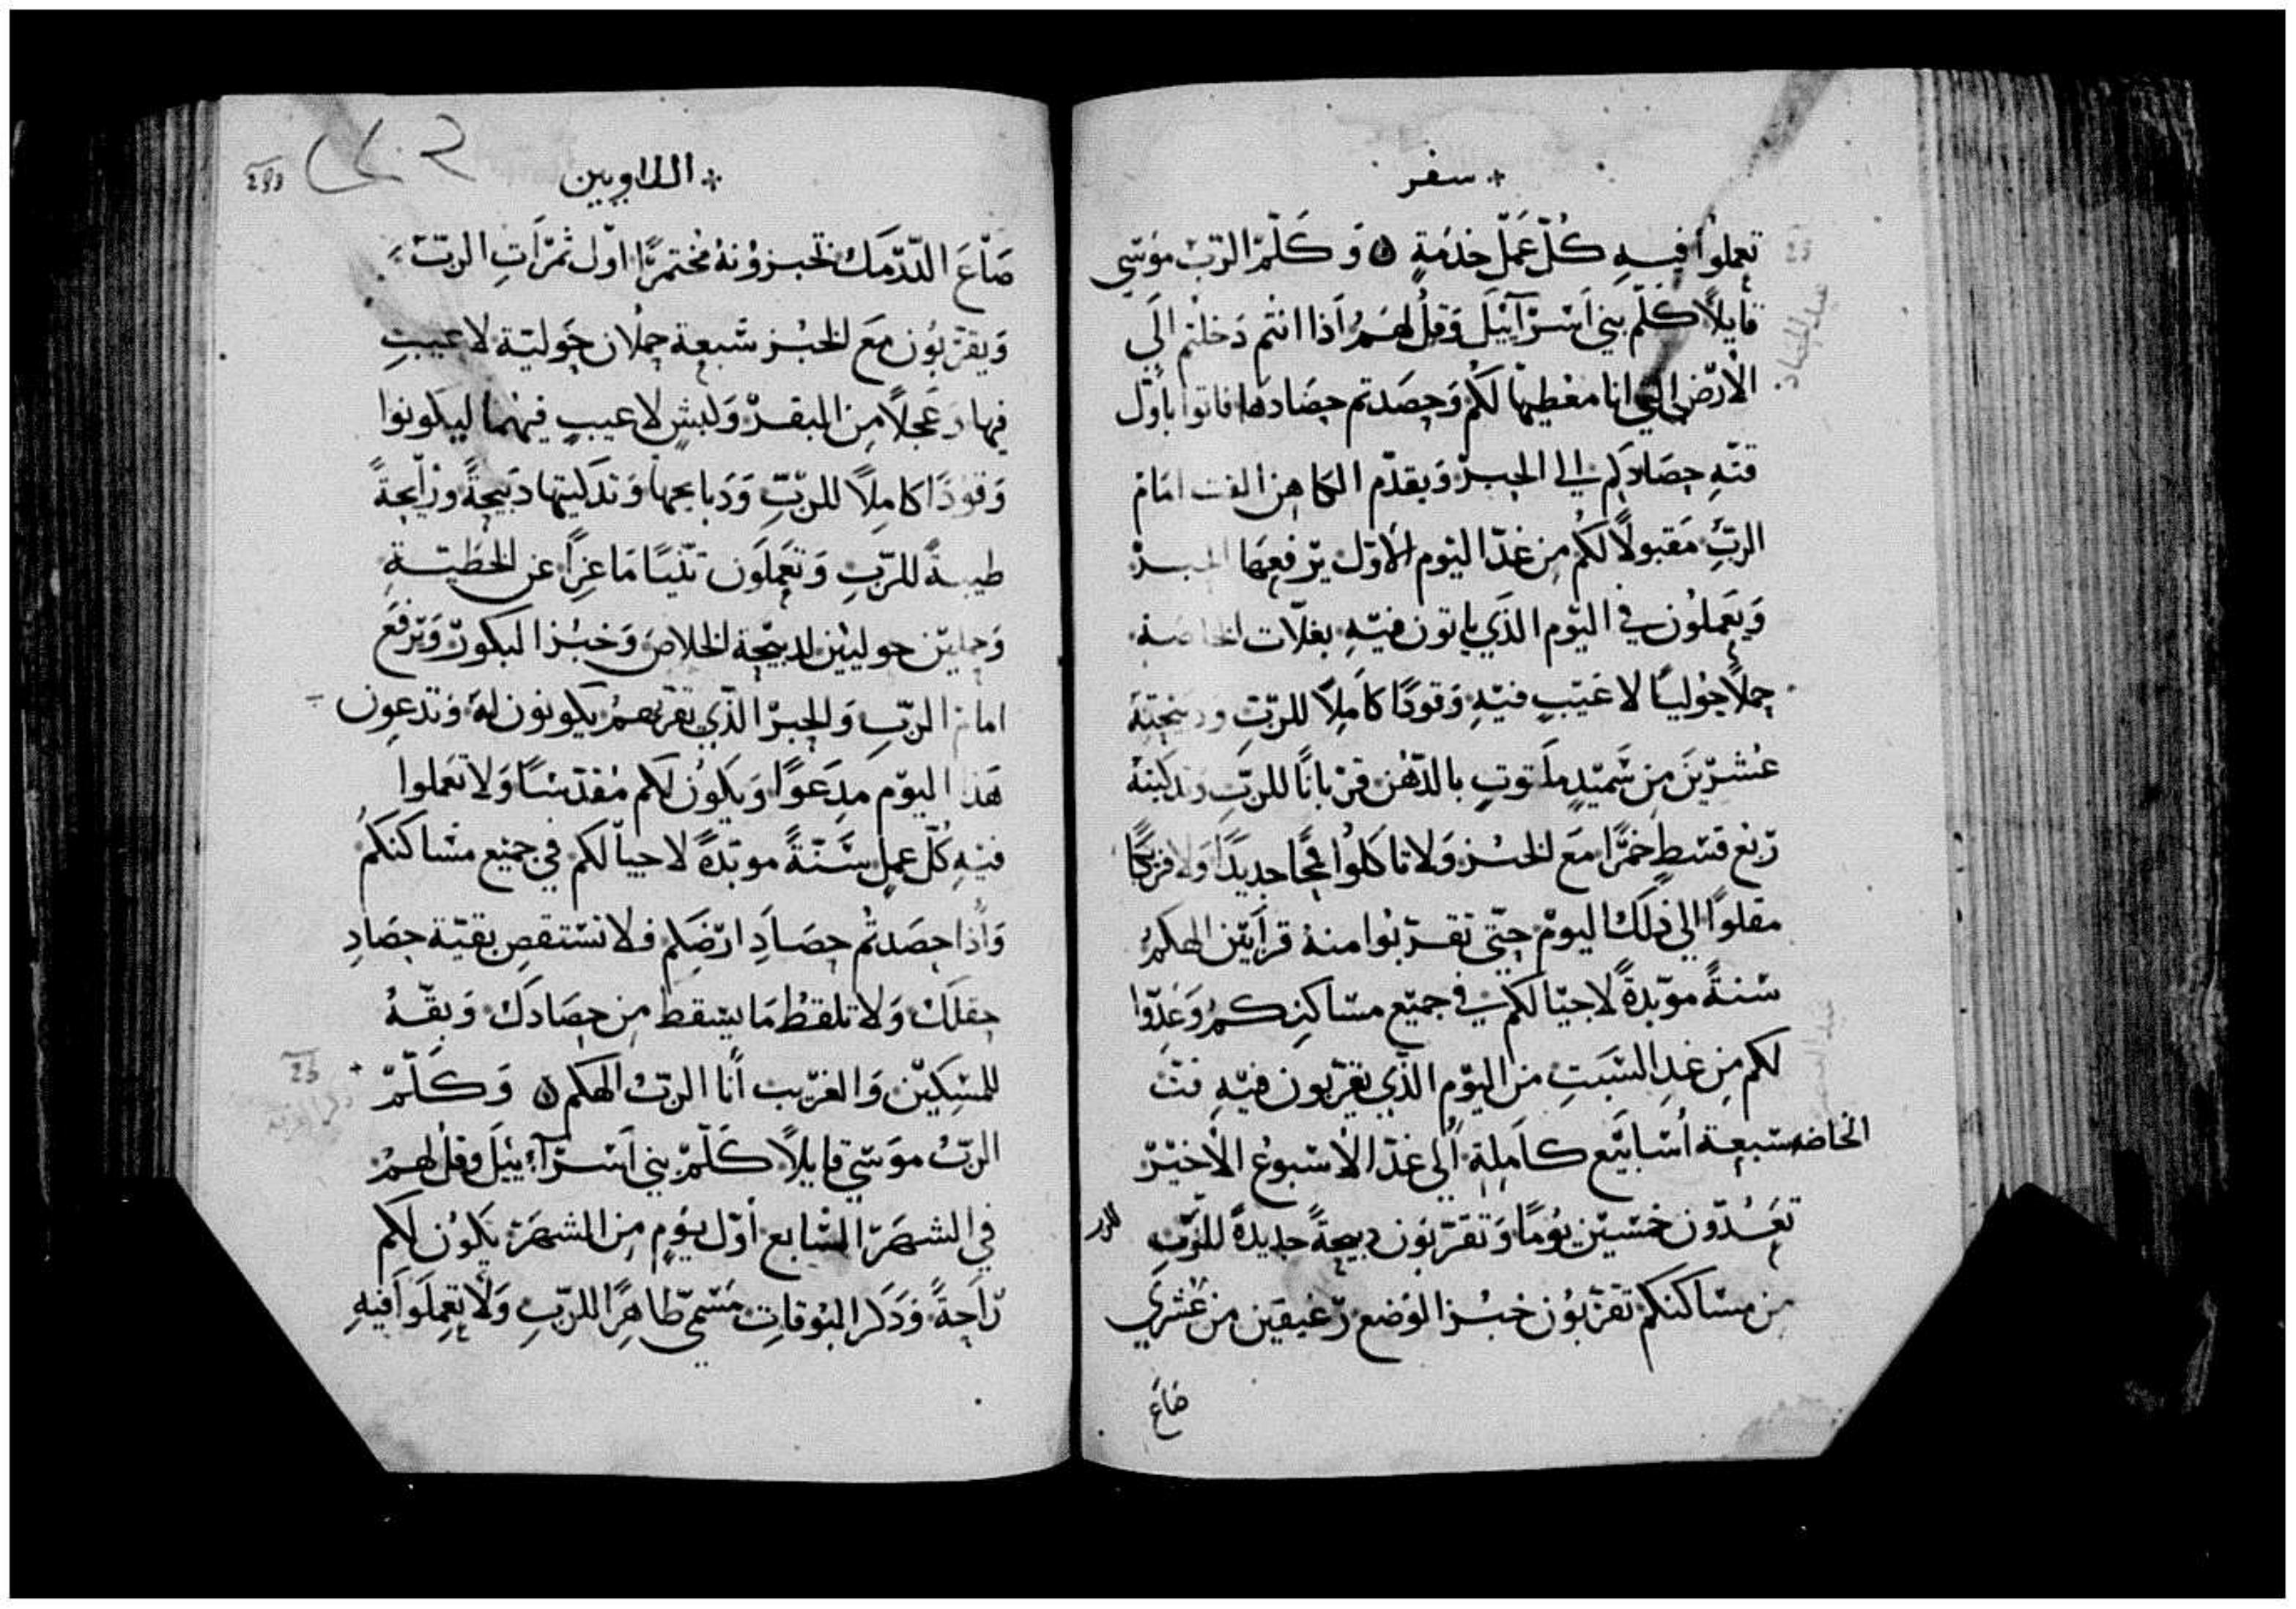 سفر
تعملوا فيه كُلّ عَمَل خدمَةٍ وَكَلّمَ الربّ موسَى
قايلاً كلّم بني اسرآئيل وَقل لهم اذا انتم دَخلتم الَي
الارض التي انا معطيها لكم وَحصَدتم حصَادها فاتوا باوّل
قتّه حصَادكم الي الحبر وَيقدّم الكاهن القت امَام
الربّ مَقبولاً لكم من غدّ اليَوم الاوّل يرفعهَا الحبر
وَيعَملون في اليَوم الذَي ياتون فيه بغلّات الخاصة
حملاً حوليًا لا عيَب فيه وَقودًا كامِلاً للربّ وَدبيحته
عُشرينَ من سَميدٍ ملتوتٍ بالدّهن قربانًا للربّ وتدكيته
ربع قسط خمرًا مَع الخبز وَلا تاكلوا قمحًا جديدًا وَلا فريكا
مقلوًا الي ذلك اليوم حتّى تقربوا منه قرابين الهكم
سنةً موبّدةً لاحيالكم في جميع مسَاكنكم وَعَدّوا
لكم من غدِ السَبَتِ من اليوم الذّي يقربون فيه قتّ
الخاصه سَبعة اسَابيَع كامِلة الي غدّ الاسبوع الاخير
تعَدّون خمسَين يَومًا وَتقربَون دبيحةً جديدةً للرَبّ
من مسَاكنكم تقربَون خبز الوضع رغيفين من عُشري
صَاعَ
اللاويين
صَاعَ الدّرمَك تخبزونهُ مختمرًا اوّل ثمرَاتِ الربّ
وَيقربّون مَع الخبز سَبعة حملان حَوليّة لا عيبِ
فيها وَعجلاً من البقر وَكبشٍ لا عيبٍ فيهما ليكونوا
وَقودًا كامِلاً للربّ وَدبايحها وَتدكيتها دَبيحةً ورايحةً
طيبةً للربّ وَتعَملَون تنيًا مَاعزاً عن الخطيّةِ
وَحملين حوليين لدبيحة الخلاص وَخبز البكور وَيرفعَ
امام الربّ وَالحبر الذّي يقربهم يكونون له وَتدعون
هَذا اليوَم مدعَوًا وَيكون لكم مقدسًا وَلا تعَملوا
فيه كُلّ عمل سَنّةً موبّدةً لاحيالكم في جميع مسَاكنكم
وَاذا حصَدتُم حصَادِ ارضَكم فلا تسَتقصِ بقيّة حصَادِ
حقلك وَلا تلقط مَا يسقط من حصَادك وَبقّهُ
للمسِكين وَالغريب أنا الربّ الهكم وَكَلّم
الربّ موَسَي قايلاً كَلّم بني اسرآئيل وقل لهم
في الشهر السَابع أوّل يوَمٍ من الشهر يَكون لكم
رَاحةً وَدَكر البوقاتِ مسَميّ طاهرًا للربّ وَلا تعملَوا فيهِ